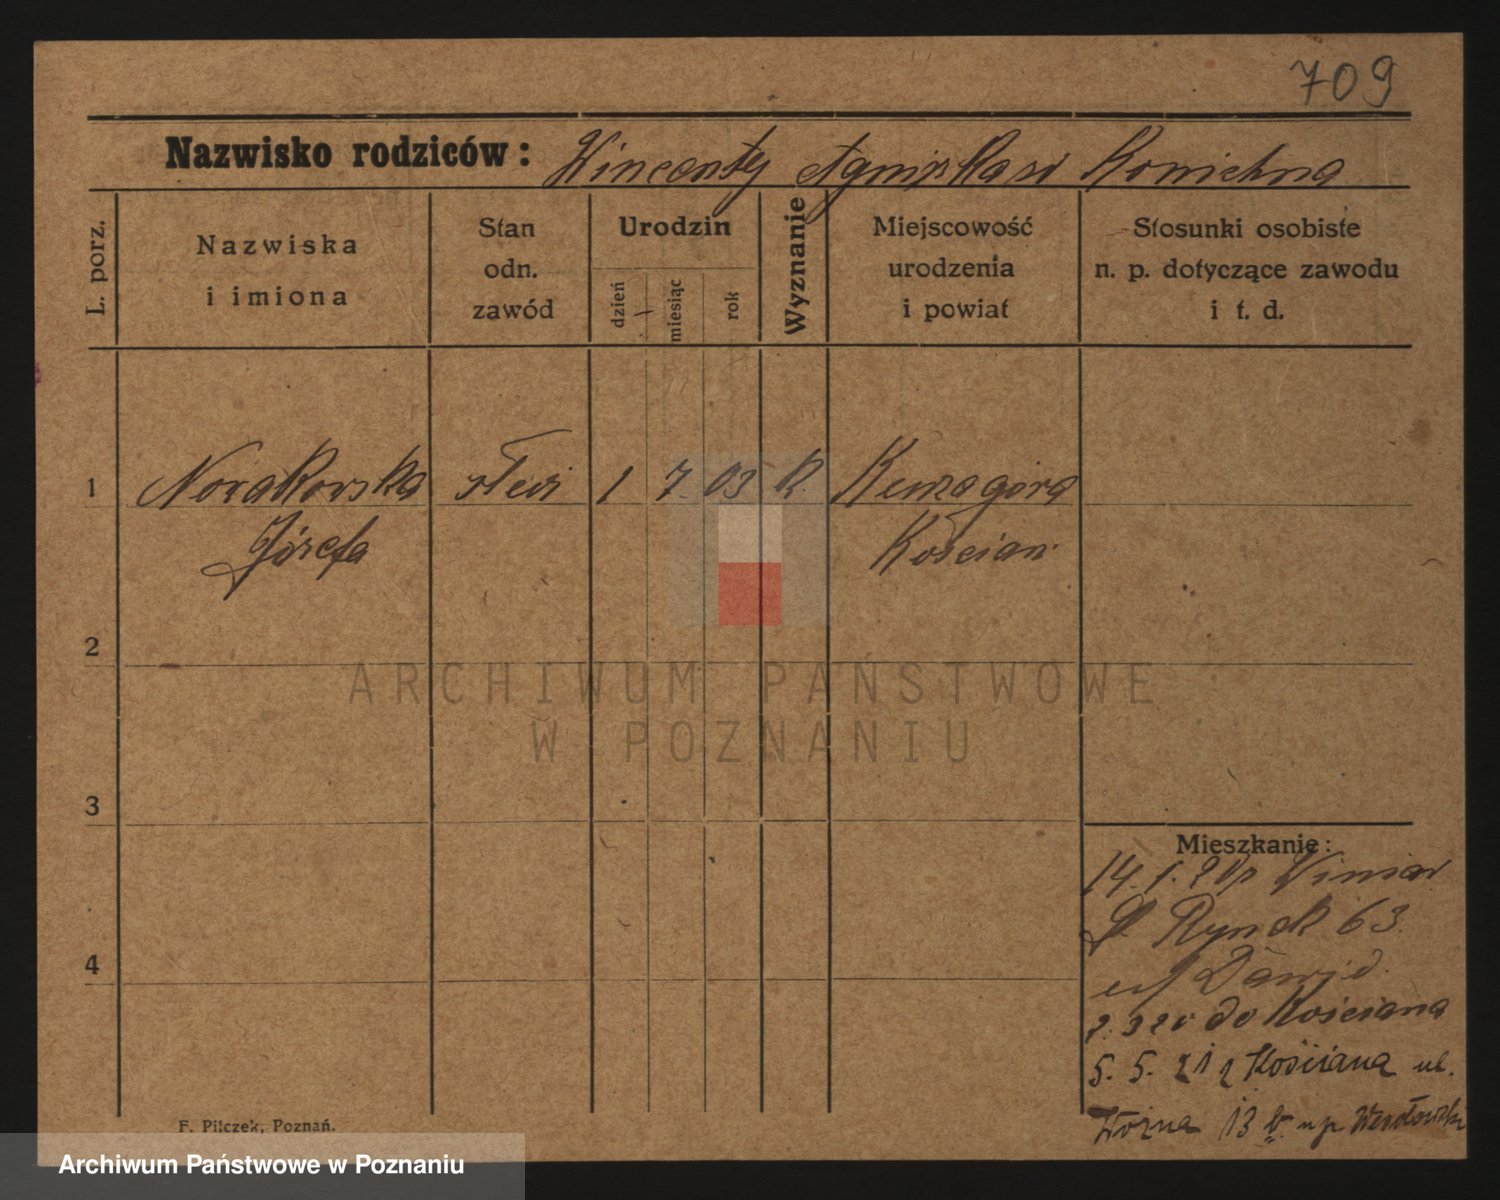 709
Nazwisko rodziców: Wincenty Agniszka
L. porz.
Nazwiska
i imiona
Stan
odn.
zawód
Urodzin
dzień
miesiąc
rok
Wyznanie
Miejscowość
urodzenia
i powiat
Stosunki osobiste
n. p. dotyczące zawodu
i t. d.
1 Nowakowska 1 7. 03 k.
Józefa Kościan.
2
3
4
Mieszkanie:
14. 1.
St. Rynek 63.
Dawid.
do Kościana
5. 5. 21 z Kościana ul.
Woźna 13 b.
F. Pilczek, Poznań.
ARCHIWUM PAŃSTWOWE
W POZNANIU
Archiwum Państwowe w Poznaniu